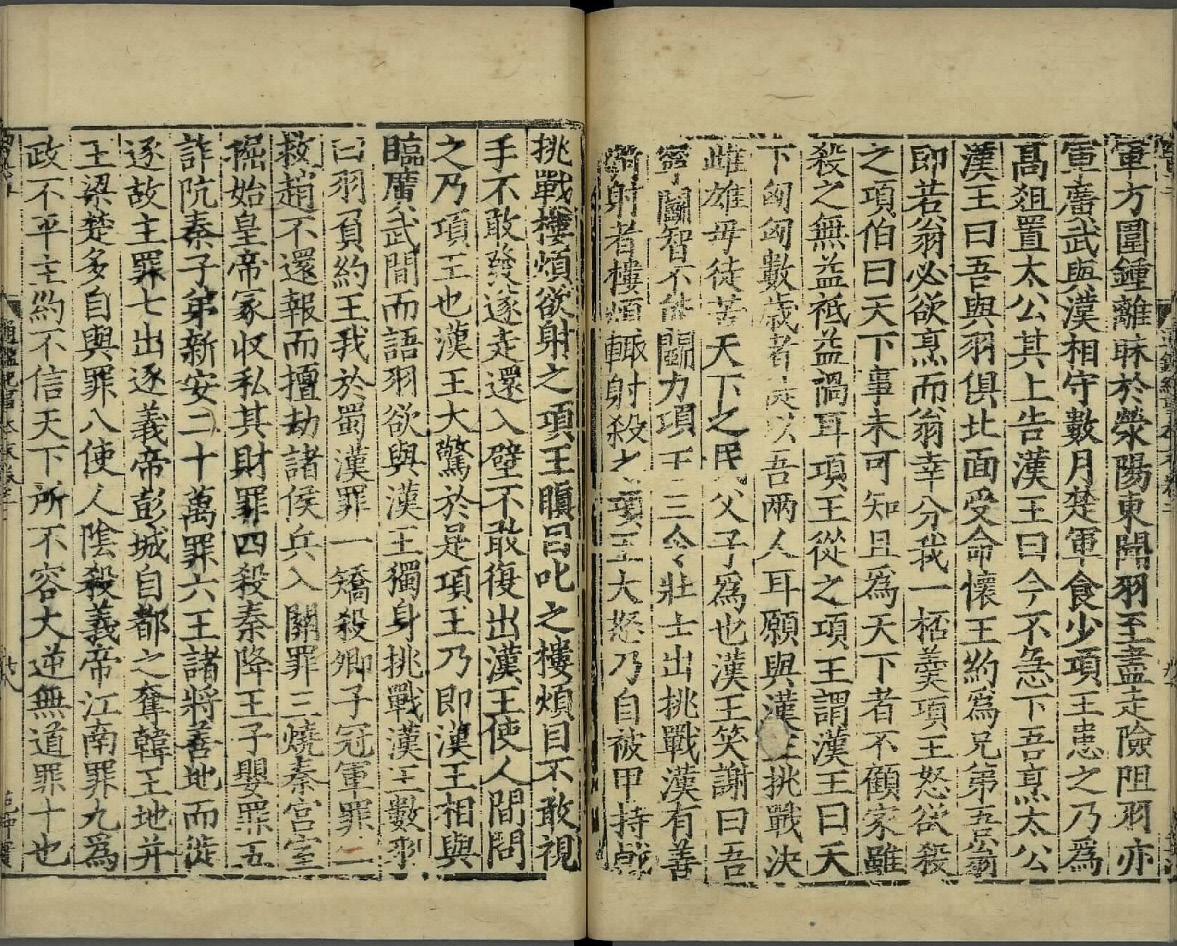 軍方圍鍾離昧於滎陽東聞羽至盡走險阻羽亦
軍廣武與漢相守數月楚軍食少項王患之乃為
高俎置太公其上告漢王曰今不急下吾烹太公
漢王曰吾與羽俱北面受命懷王約為兄弟吾翁
即若翁必欲烹而翁幸分我一桮羹項王怒欲殺
之項伯曰天下事未可知且為天下者不顧家雖
殺之無益祗益禍耳項王從之項王謂漢王曰天
下匈匈數歲者徒以吾兩人耳願與漢王挑戰決
雌雄毋徒苦天下之民父子為也漢王笑謝曰吾
寧鬭智不能鬭力項王三令壯士出挑戰漢有善
騎射者樓煩輒射殺之項王大怒乃自被甲持戟
挑戰樓煩欲射之項王瞋目叱之樓煩目不敢視
手不敢發遂走還入壁不敢復出漢王使人間問
之乃項王也漢王大驚於是項王乃即漢王相與
臨廣武間而語羽欲與漢王獨身挑戰漢王數羽
曰羽負約王我於蜀漢罪一矯殺卿子冠軍罪二
救趙不還報而擅劫諸侯兵入關罪三燒秦宮室
掘始皇帝冢收私其財罪四殺秦降王子嬰罪五
詐阬秦子弟新安二十萬罪六王諸將善地而徙
逐故主罪七出逐義帝彭城自都之奪韓王地并
王梁楚多自與罪八使人陰殺義帝江南罪九為
政不平主約不信天下所不容大逆無道罪十也